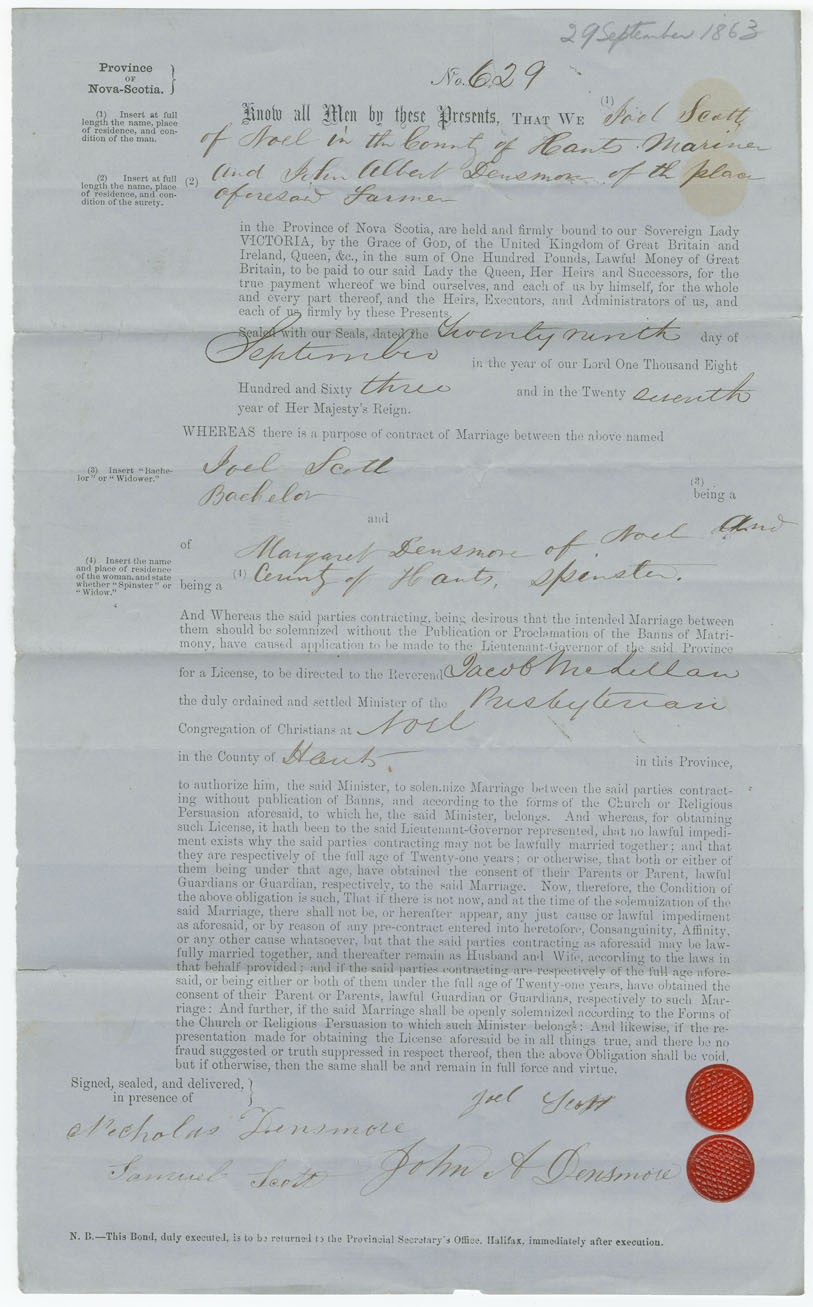 29 September 1863
Province
OF
Nova-Scotia.
No. 629
(1) Insert at full
length the name, place
of residence, and con-
dition of the man.
Know all Men by these Presents, THAT WE (1) Joel Scott
of Noel in the County of Hants Mariner
(2) Insert at full
length the name, place
of residence, and con-
dition of the surety.
(2) and John Albert Densmore of the place
aforesaid Farmer
in the Province of Nova Scotia, are held and firmly bound to our Sovereign Lady
VICTORIA, by the Grace of GOD, of the United Kingdom of Great Britain and
Ireland, Queen, &c., in the sum of One Hundred Pounds, Lawful Money of Great
Britain, to be paid to our said Lady the Queen, Her Heirs and Successors, for the
true payment whereof we bind ourselves, and each of us by himself, for the whole
and every part thereof, and the Heirs, Executors, and Administrators of us, and
each of us, firmly by these Presents.
Sealed with our Seals, dated the Twenty ninth day of
September in the year of our Lord One Thousand Eight
Hundred and Sixty three and in the Twenty seventh
year of Her Majesty's Reign.
WHEREAS there is a purpose of contract of Marriage between the above named
(3) Insert "Bache-
lor" or "Widower."
Joel Scott
(3)
Bachelor being a
and
of Margaret Densmore of Noel and
(4) Insert the name
and place of residence
of the woman, and state
whether "Spinster" or
"Widow."
being a (4) County of Hants, Spinster.
And Whereas the said parties contracting, being desirous that the intended Marriage between
them should be solemnized without the Publication or Proclamation of the Banns of Matri-
mony, have caused application to be made to the Lieutenant-Governor of the said Province
for a License, to be directed to the Reverend Jacob McLellan
the duly ordained and settled Minister of the Presbyterian
Congregation of Christians at Noel
in the County of Hants in this Province,
to authorize him, the said Minister, to solemnize Marriage between the said parties contract-
ing without publication of Banns, and according to the forms of the Church or Religious
Persuasion aforesaid, to which he, the said Minister, belongs. And whereas, for obtaining
such License, it hath been to the said Lieutenant-Governor represented, that no lawful impedi-
ment exists why the said parties contracting may not be lawfully married together; and that
they are respectively of the full age of Twenty-one years; or otherwise, that both or either of
them being under that age, have obtained the consent of their Parents or Parent, lawful
Guardians or Guardian, respectively, to the said Marriage. Now, therefore, the Condition of
the above obligation is such, That if there is not now, and at the time of the solemnization of the
said Marriage, there shall not be, or hereafter appear, any just cause or lawful impediment
as aforesaid, or by reason of any pre-contract entered into heretofore, Consanguinity, Affinity,
or any other cause whatsoever, but that the said parties contracting as aforesaid may be law-
fully married together, and thereafter remain as Husband and Wife, according to the laws in
that behalf provided; and if the said parties contracting are respectively of the full age afore-
said, or being either or both of them under the full age of Twenty-one years, have obtained the
consent of their Parent or Parents, lawful Guardian or Guardians, respectively to such Mar-
riage: And further, if the said Marriage shall be openly solemnized according to the Forms of
the Church or Religious Persuasion to which such Minister belongs: And likewise, if the re-
presentation made for obtaining the License aforesaid be in all things true, and there be no
fraud suggested or truth suppressed in respect thereof, then the above Obligation shall be void,
but if otherwise, then the same shall be and remain in full force and virtue.
Signed, sealed, and delivered,
in presence of
Joel Scott
Nicholas Densmore
Samuel Scott
John A Densmore
N. B.—This Bond, duly executed, is to be returned to the Provincial Secretary's Office, Halifax, immediately after execution.